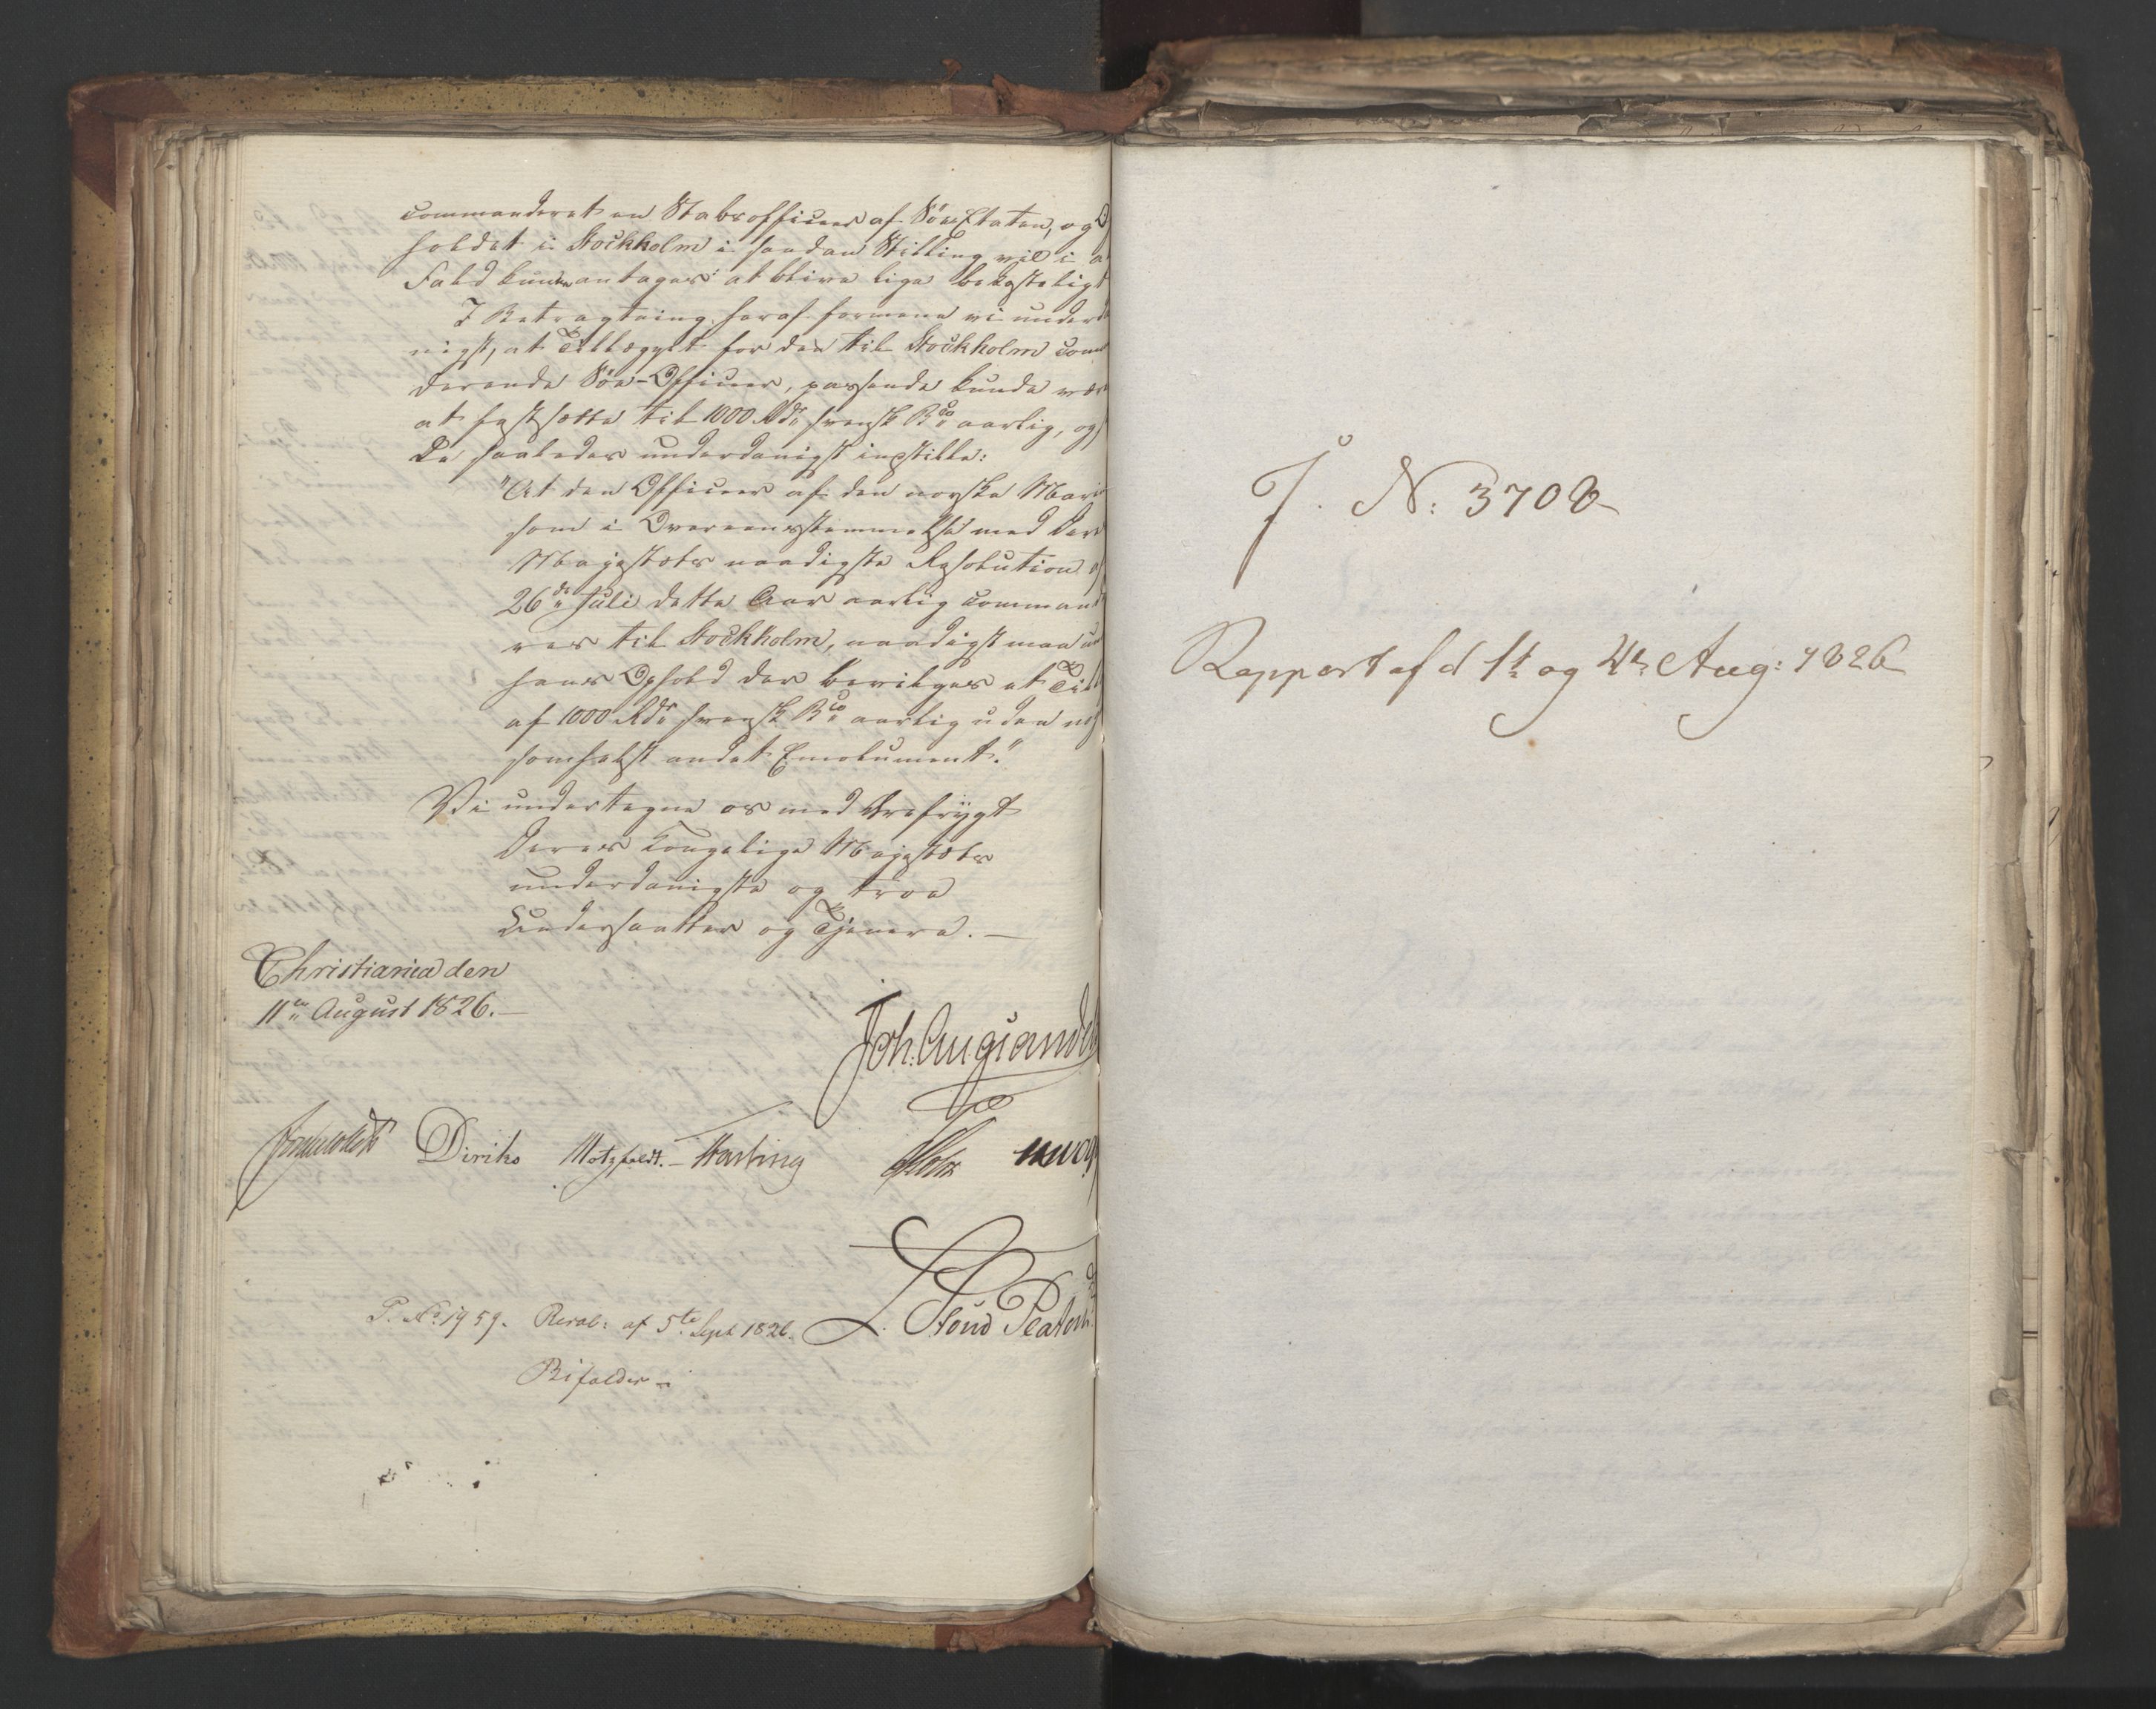 commanderet en Stabsofficeer af Söe-Etaten, og O
holdet i Stockholm i saadan Stilling vil i a
Fald kunne antages at blive lige bekosteligt
I Betragtning heraf formene vi underd
nigst, at Tillægget for den til Stockholm com
derende Söe-Officeer, passende kunde vær
at fastsætte til 1000 Rdr svensk Bco aarlig, og
De saaledes underdanigst indstille:
"At den Officeer af den norske Mari
som i Overeensstemmelse med Der
Majestæts naadigste Resolution af
26de Juli dette Aar aarlig command
res til Stockholm, naadigst maa un
hans Ophold der bevilges et Till
af 1000 Rdr svensk Bco aarlig uden no
somhelst andet Emolument."
Vi undertegne os med Ærefrygt
Deres Kongelige Majestæts
underdanigste og troe
Undersaatter og Tjenere. —
Christiania den
11te August 1826. —
Joh. Aug: Sandels
Diriks Motzfeldt. — Hasting Holst
P. No 1959. Resol: af 5te Sept 1826.
Bifaldes —
J. N: 3708
Rapport af d 1t og 4de Aug: 1826